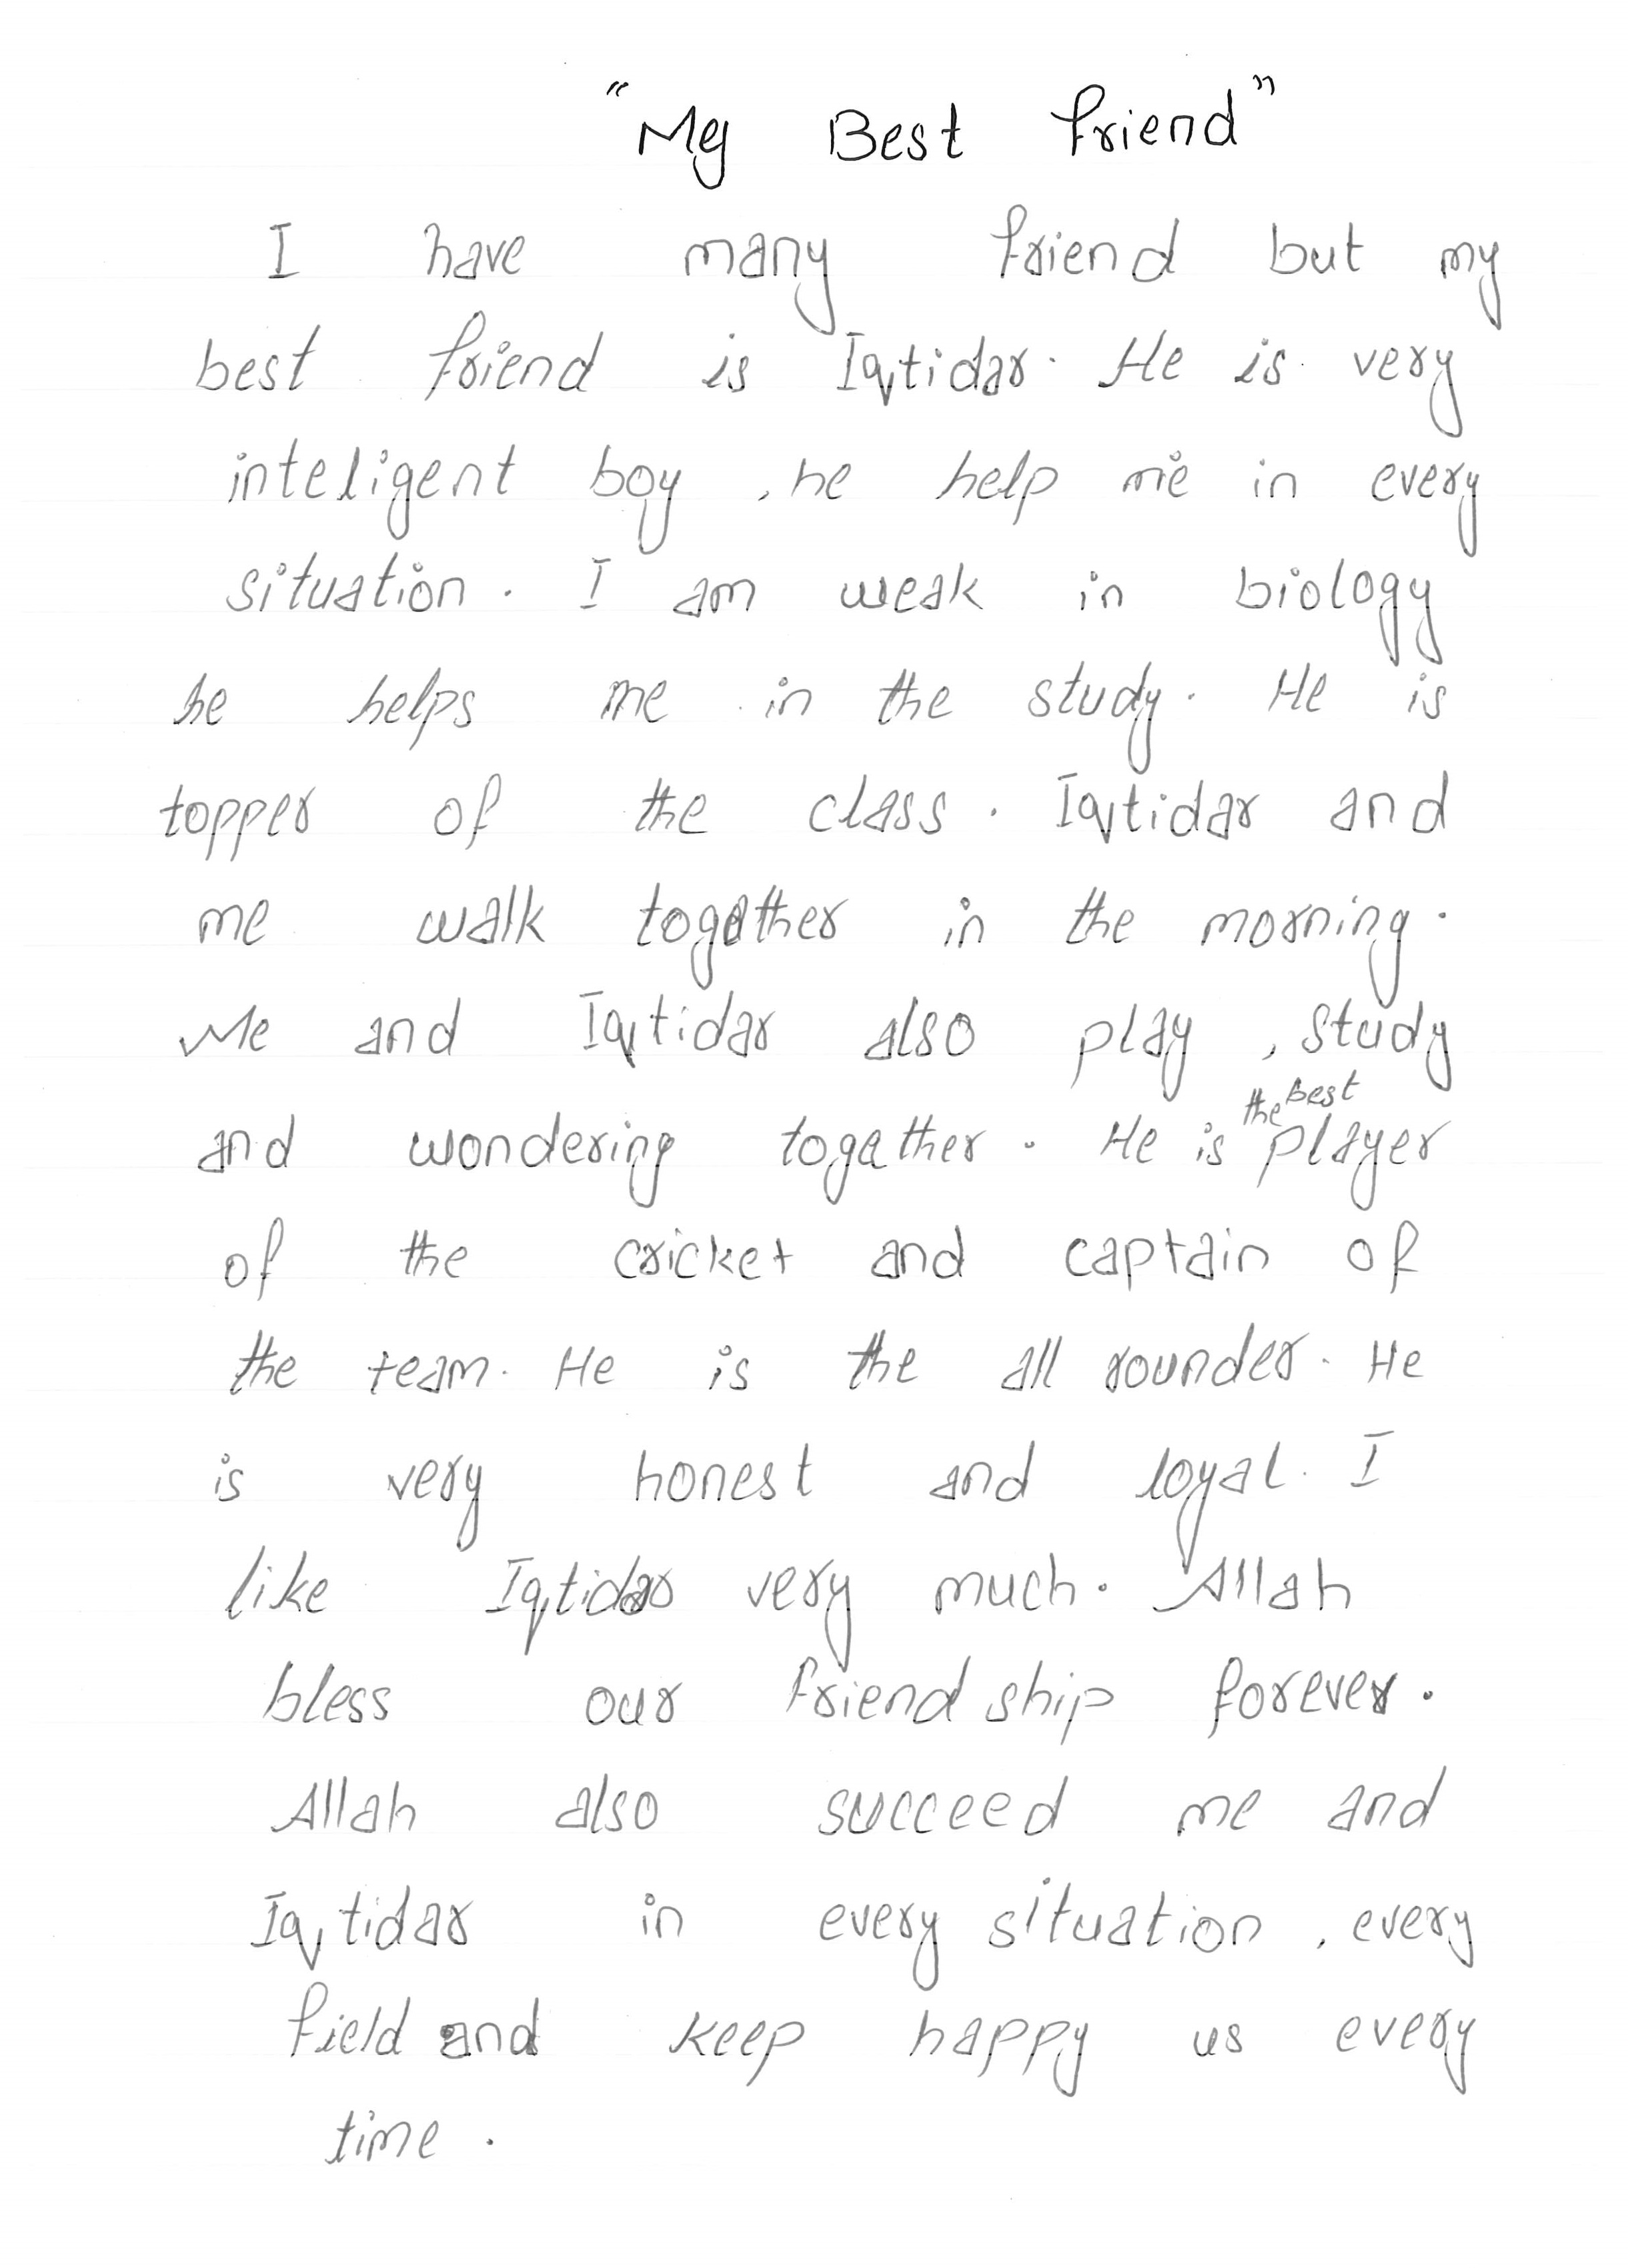 "My Best friend"
I have many friend but my
best friend is Iqtidar. He is very
inteligent boy , he help me in every
situation. I am weak in biology
he helps me in the study. He is
topper of the class. Iqtidar and
me walk together in the morning.
Me and Iqtidar also play , study
and wondering together. He is the best player
of the cricket and captain of
the team. He is the all rounder. He
is very honest and loyal. I
like Iqtidar very much. Allah
bless our friend ship forever.
Allah also succeed me and
Iqtidar in every situation , every
field and keep happy us every
time.